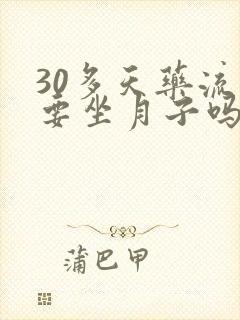 30多天药流
要坐月子吗
蒲巴甲